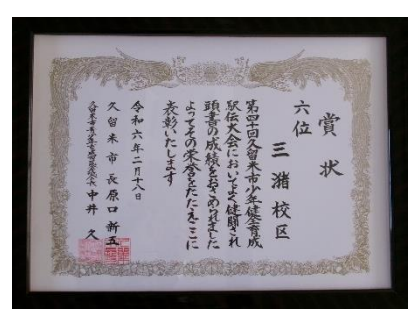 賞状
六位
三潴校区
第四十回久留米市少年健全育成
駅伝大会においてよく健闘され
頭書の成績をおさめられました
よってその栄誉をたたえここに
表彰いたします
令和六年二月十八日
久留米市長原口新五
中井久